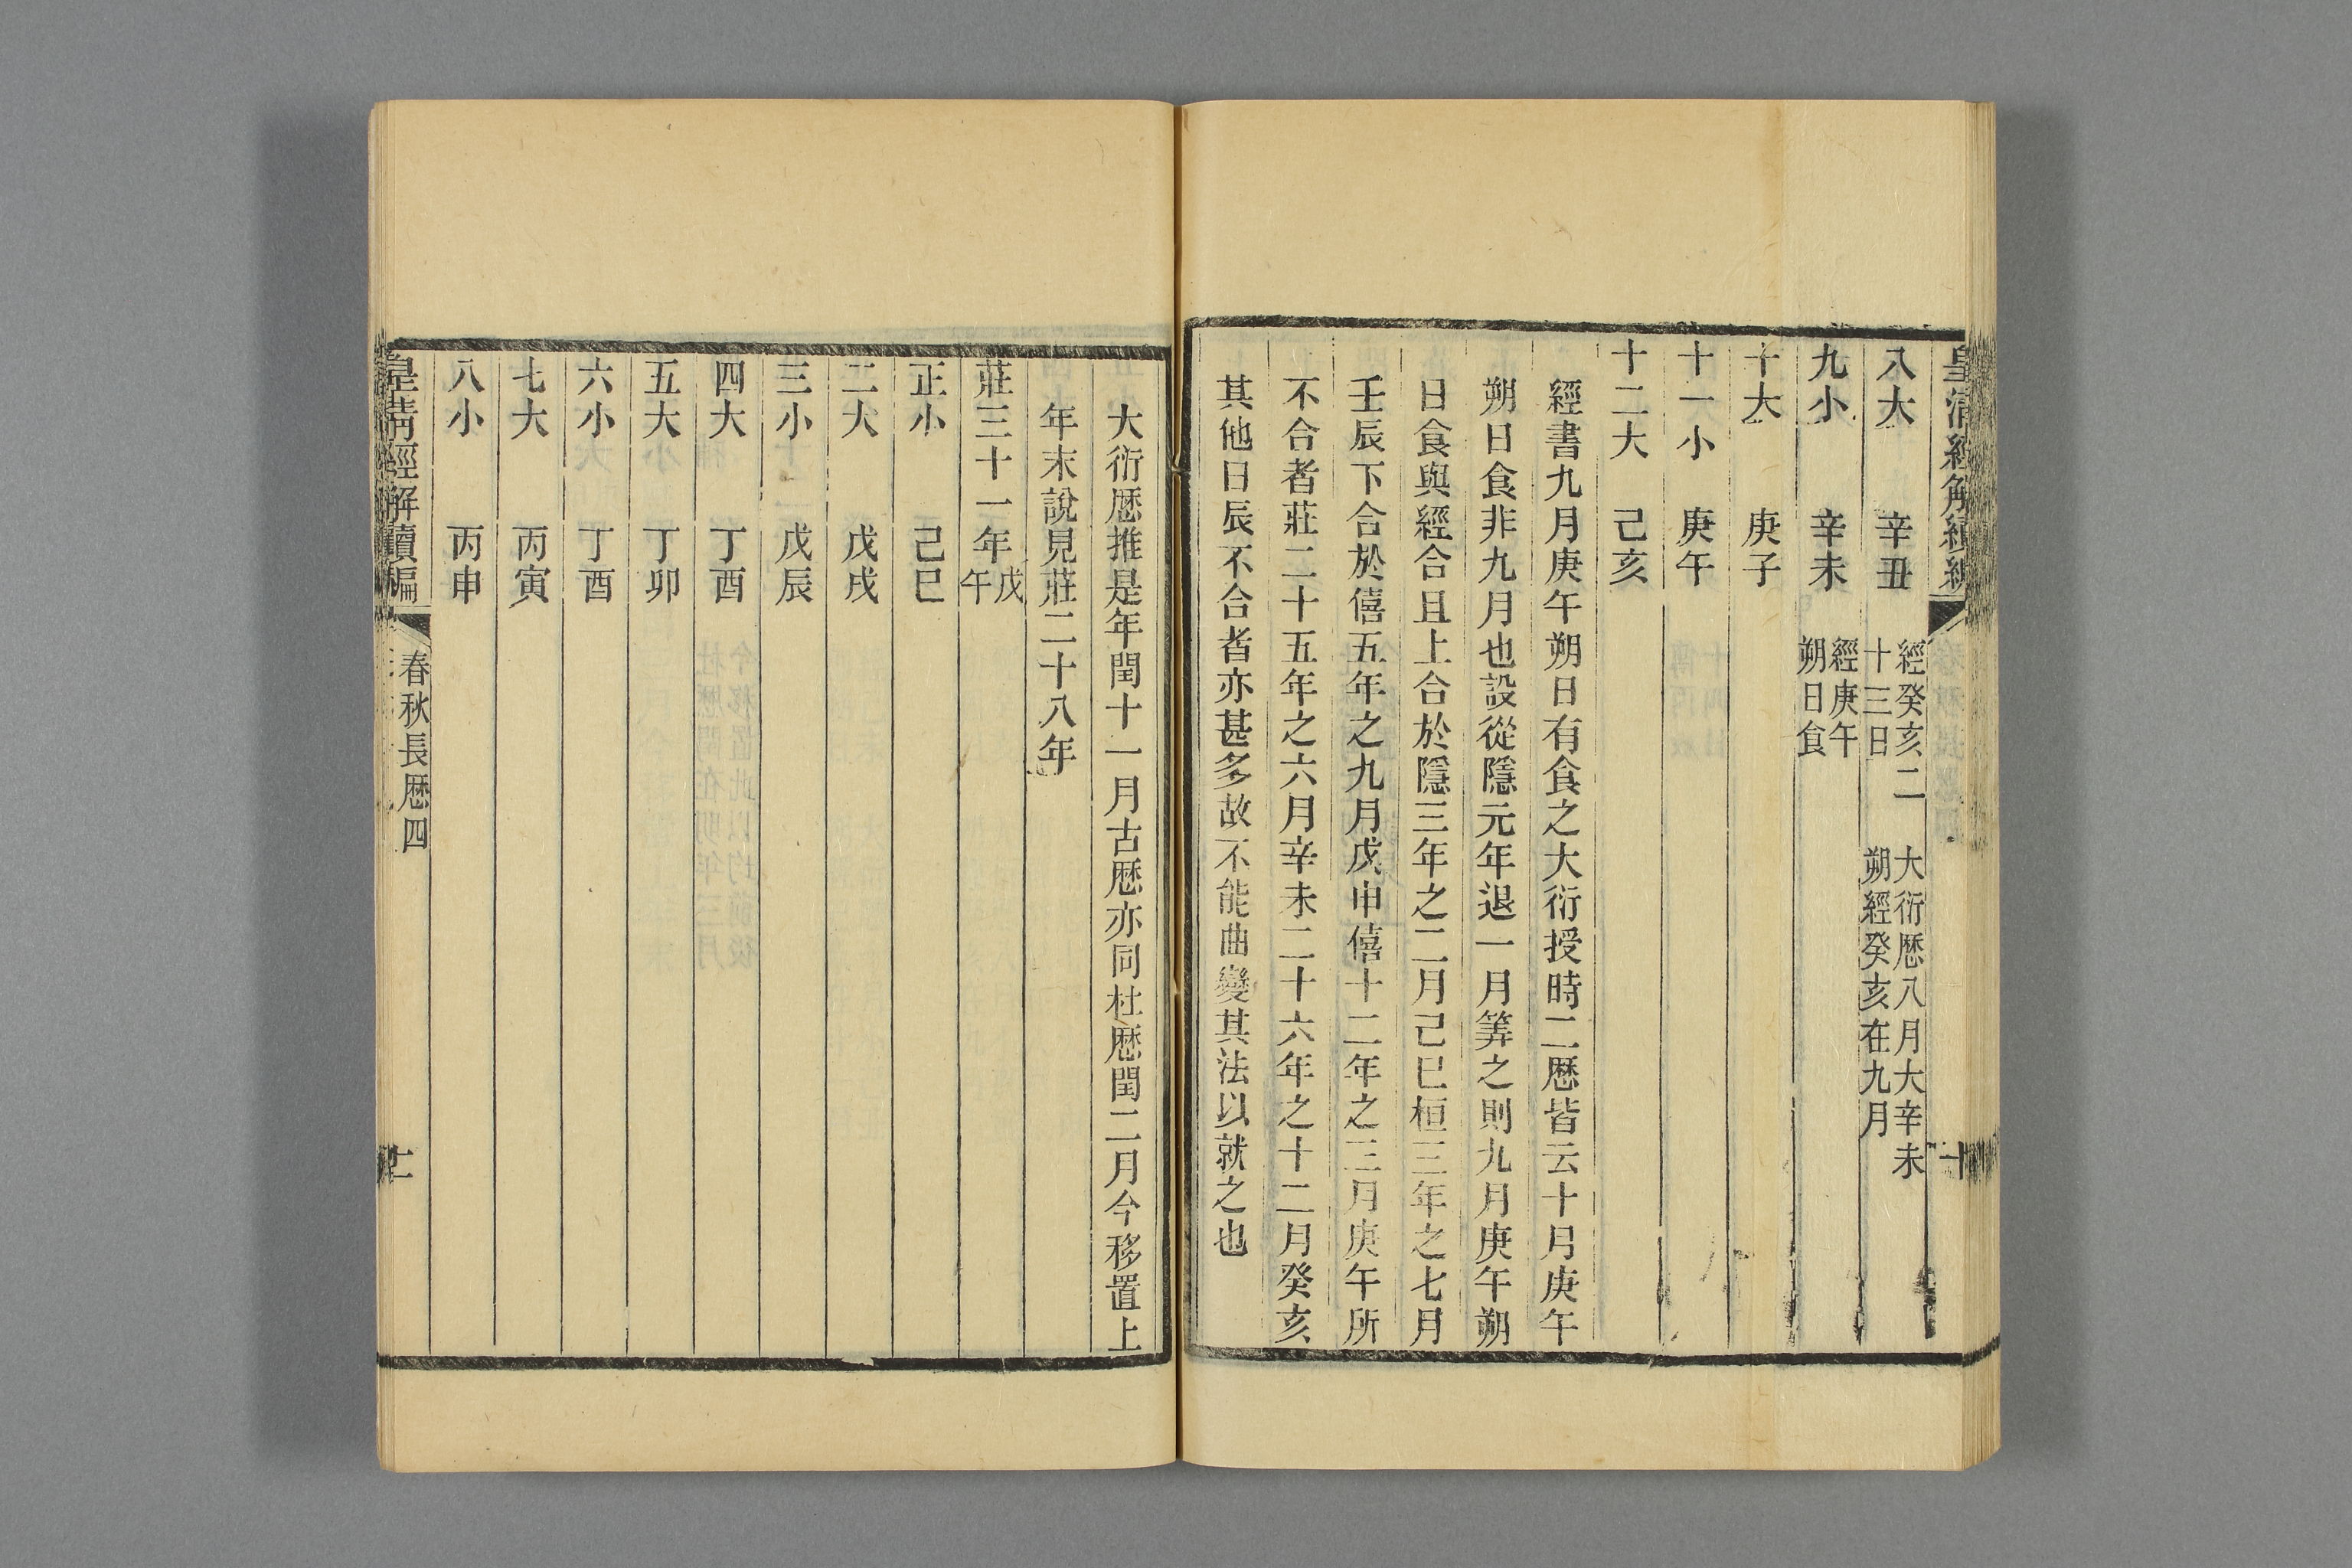 八大　辛丑　經癸亥二十三日　大衍厯八月大辛未朔經癸亥在九月
九小　辛未　經庚午朔日食
十大　庚子
十一小　庚午
十二大　己亥
經書九月庚午朔日有食之大衍授時二厯皆云十月庚午
朔日食非九月也設從隱元年退一月筭之則九月庚午朔
日食與經合且上合於隱三年之二月己巳桓三年之七月
壬辰下合於僖五年之九月戊申僖十二年之三月庚午所
不合者莊二十五年之六月辛未二十六年之十二月癸亥
其他日辰不合者亦甚多故不能曲變其法以就之也
大衍厯推是年閏十一月古厯亦同杜厯閏二月今移置上
年末說見莊二十八年
莊三十一年戊午
正小　己巳
二大　戊戌
三小　戊辰
四大　丁酉
五大　丁卯
六小　丁酉
七大　丙寅
八小　丙申
皇清經解續編　春秋長厯四